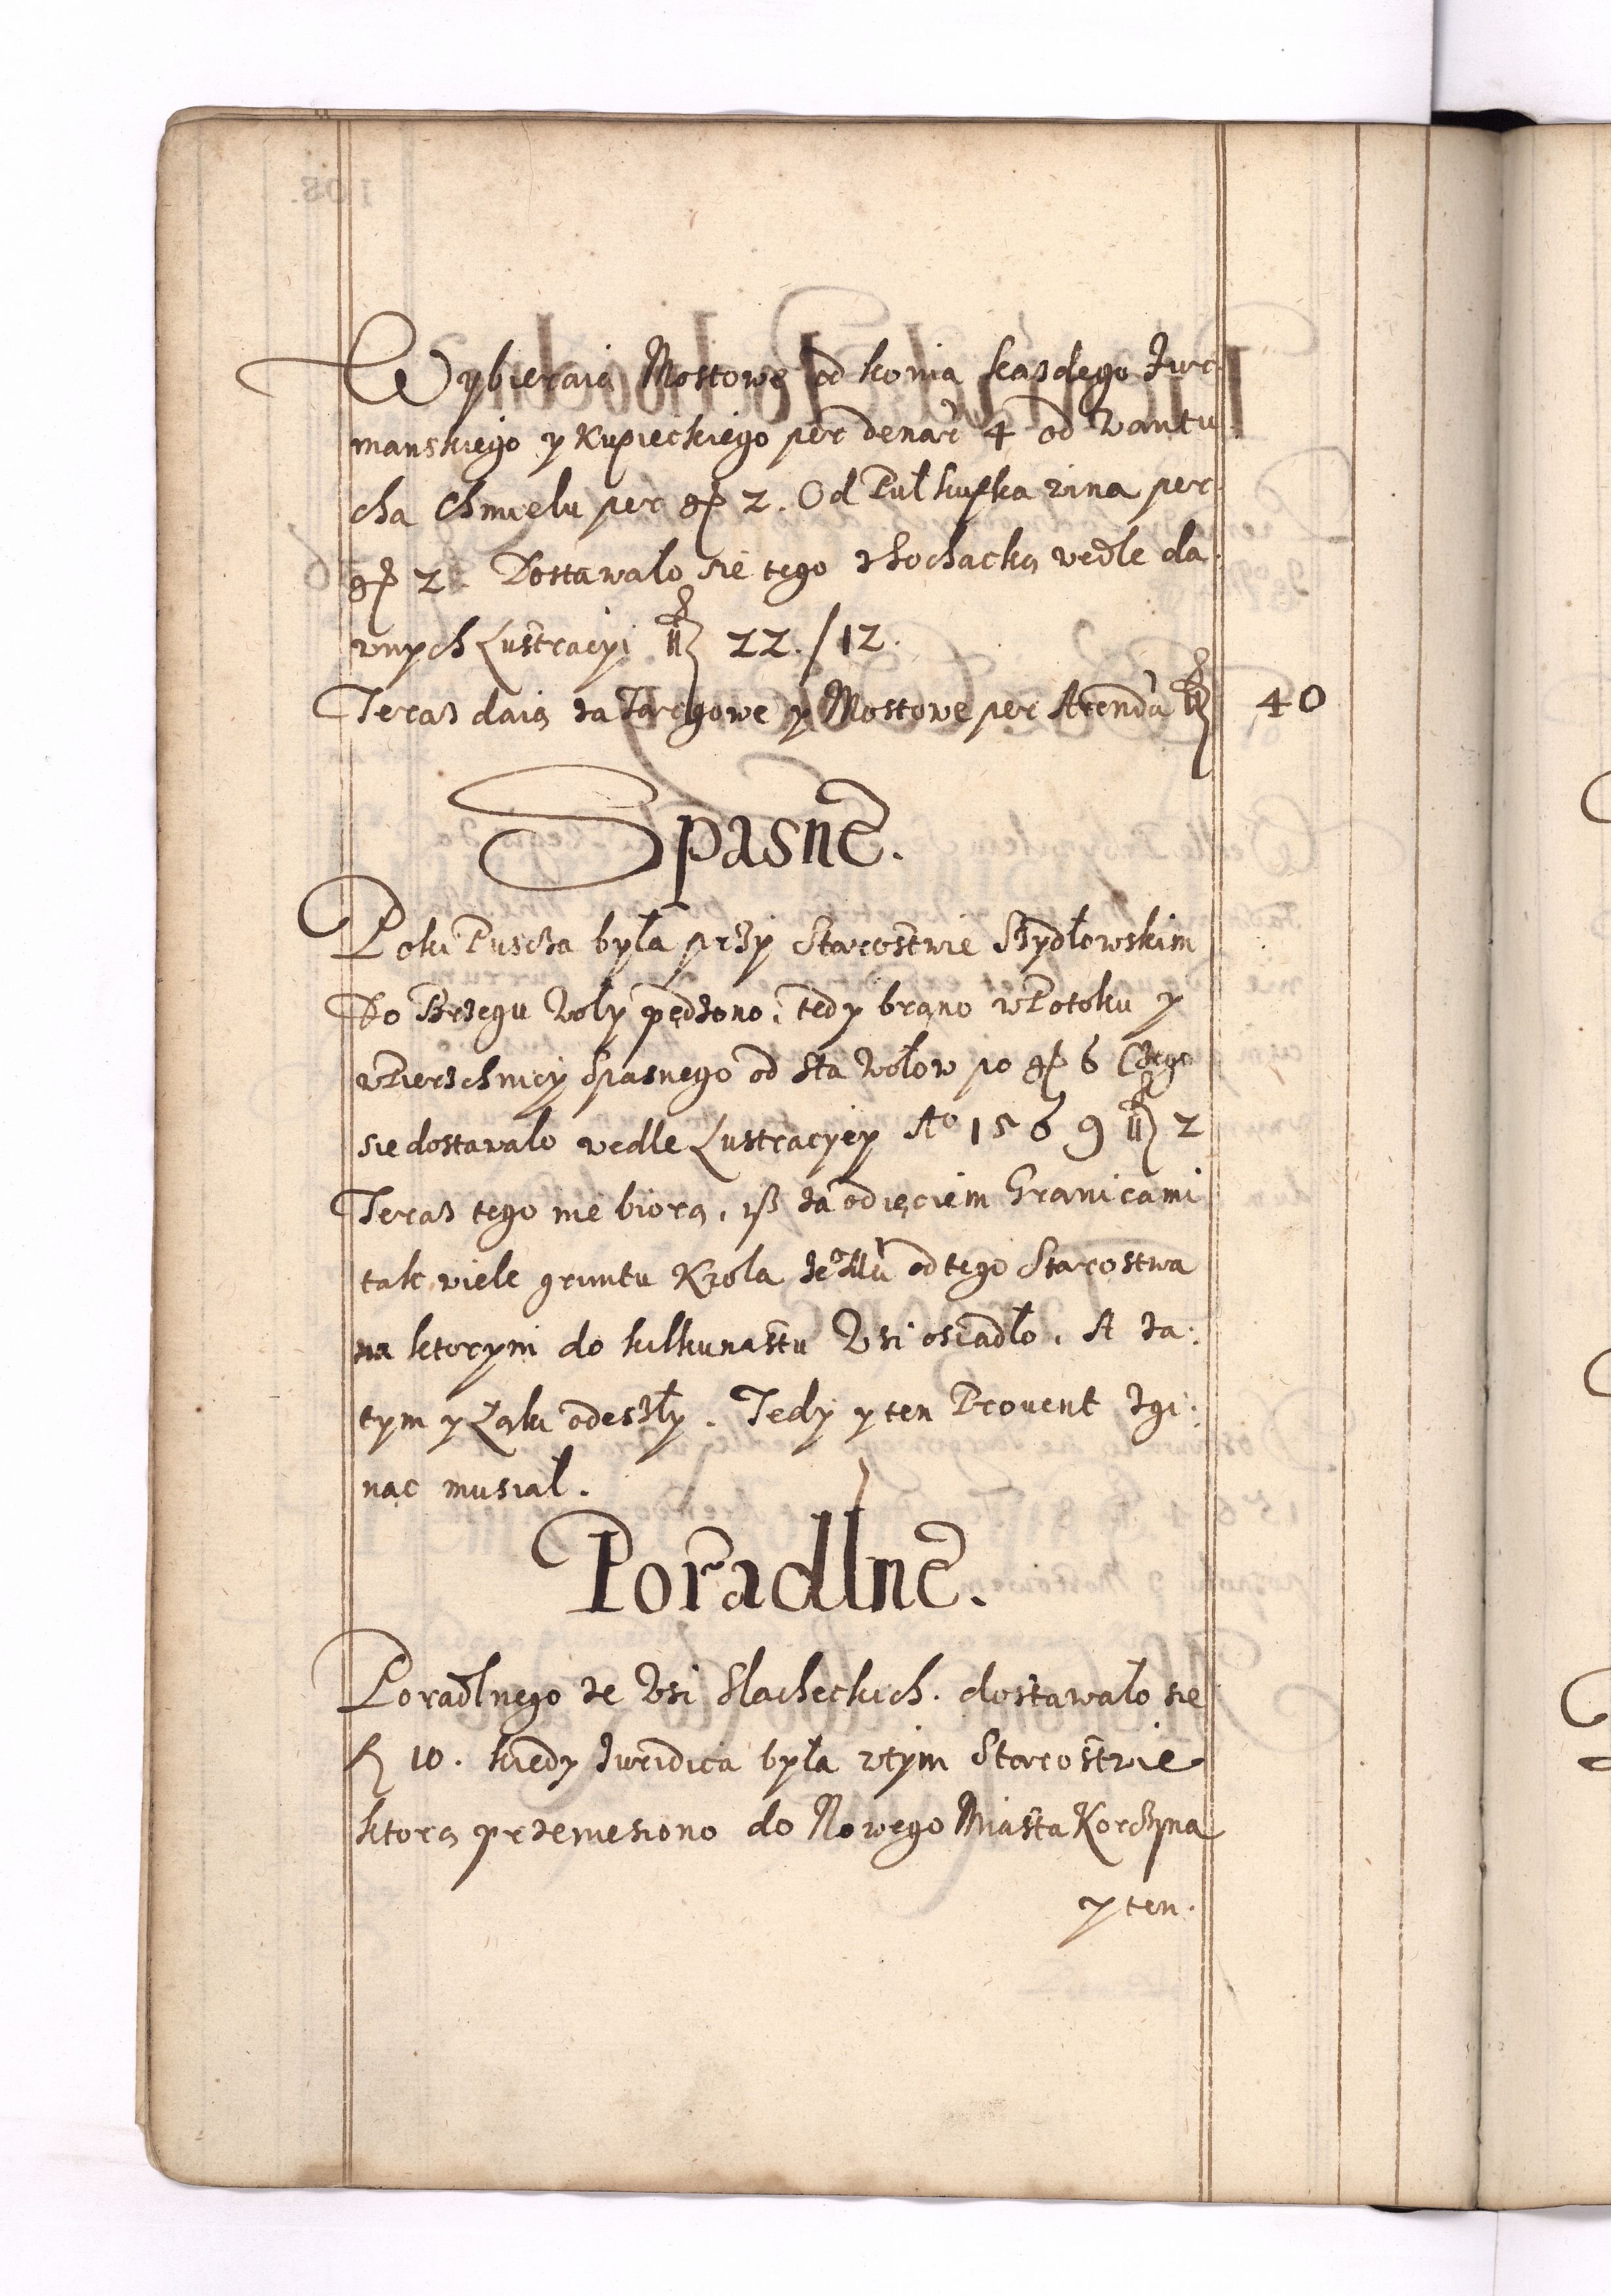 Wybieraią Mostowe od konia kazdego Fur
manskiego y Kupieckiego per denar 4 od Wantu
cha Chmielu per gr 2. Od Puł kufka wina per
gr 2. Dostawało sie tego wedle da
wnych Lustracyi fl 22./12.
Teraz daią za Targowe y Mostowe per Arendą fl 40
Spasne.
Poki Puscza była przy Starostwie Szydłowskim
Do Brzegu Woły pędzono, tedy brano w Potoku y
w Pierzchnicy Spasnego od sta Wołow po gr 6 Czego
sie dostawało wedle Lustracyey A° 1569 fl 2
Teraz tego nie biorą, isz za odięciem Granicami
tak wiele gruntu Krola Je° Mci od tego Starostwa
na ktorym do kilkunastu Wsi osiadło. A za:
tym y Łąki odeszły. Tedy y ten Prouent zgi:
nąc musiał.
Poradlne.
Poradlnego ze Wsi Slacheckich. dostawało sie
fl 10. kiedy Juridica była w tym Starostwie
ktorą przeniesiono do Nowego Miasta Korczyna
y ten.